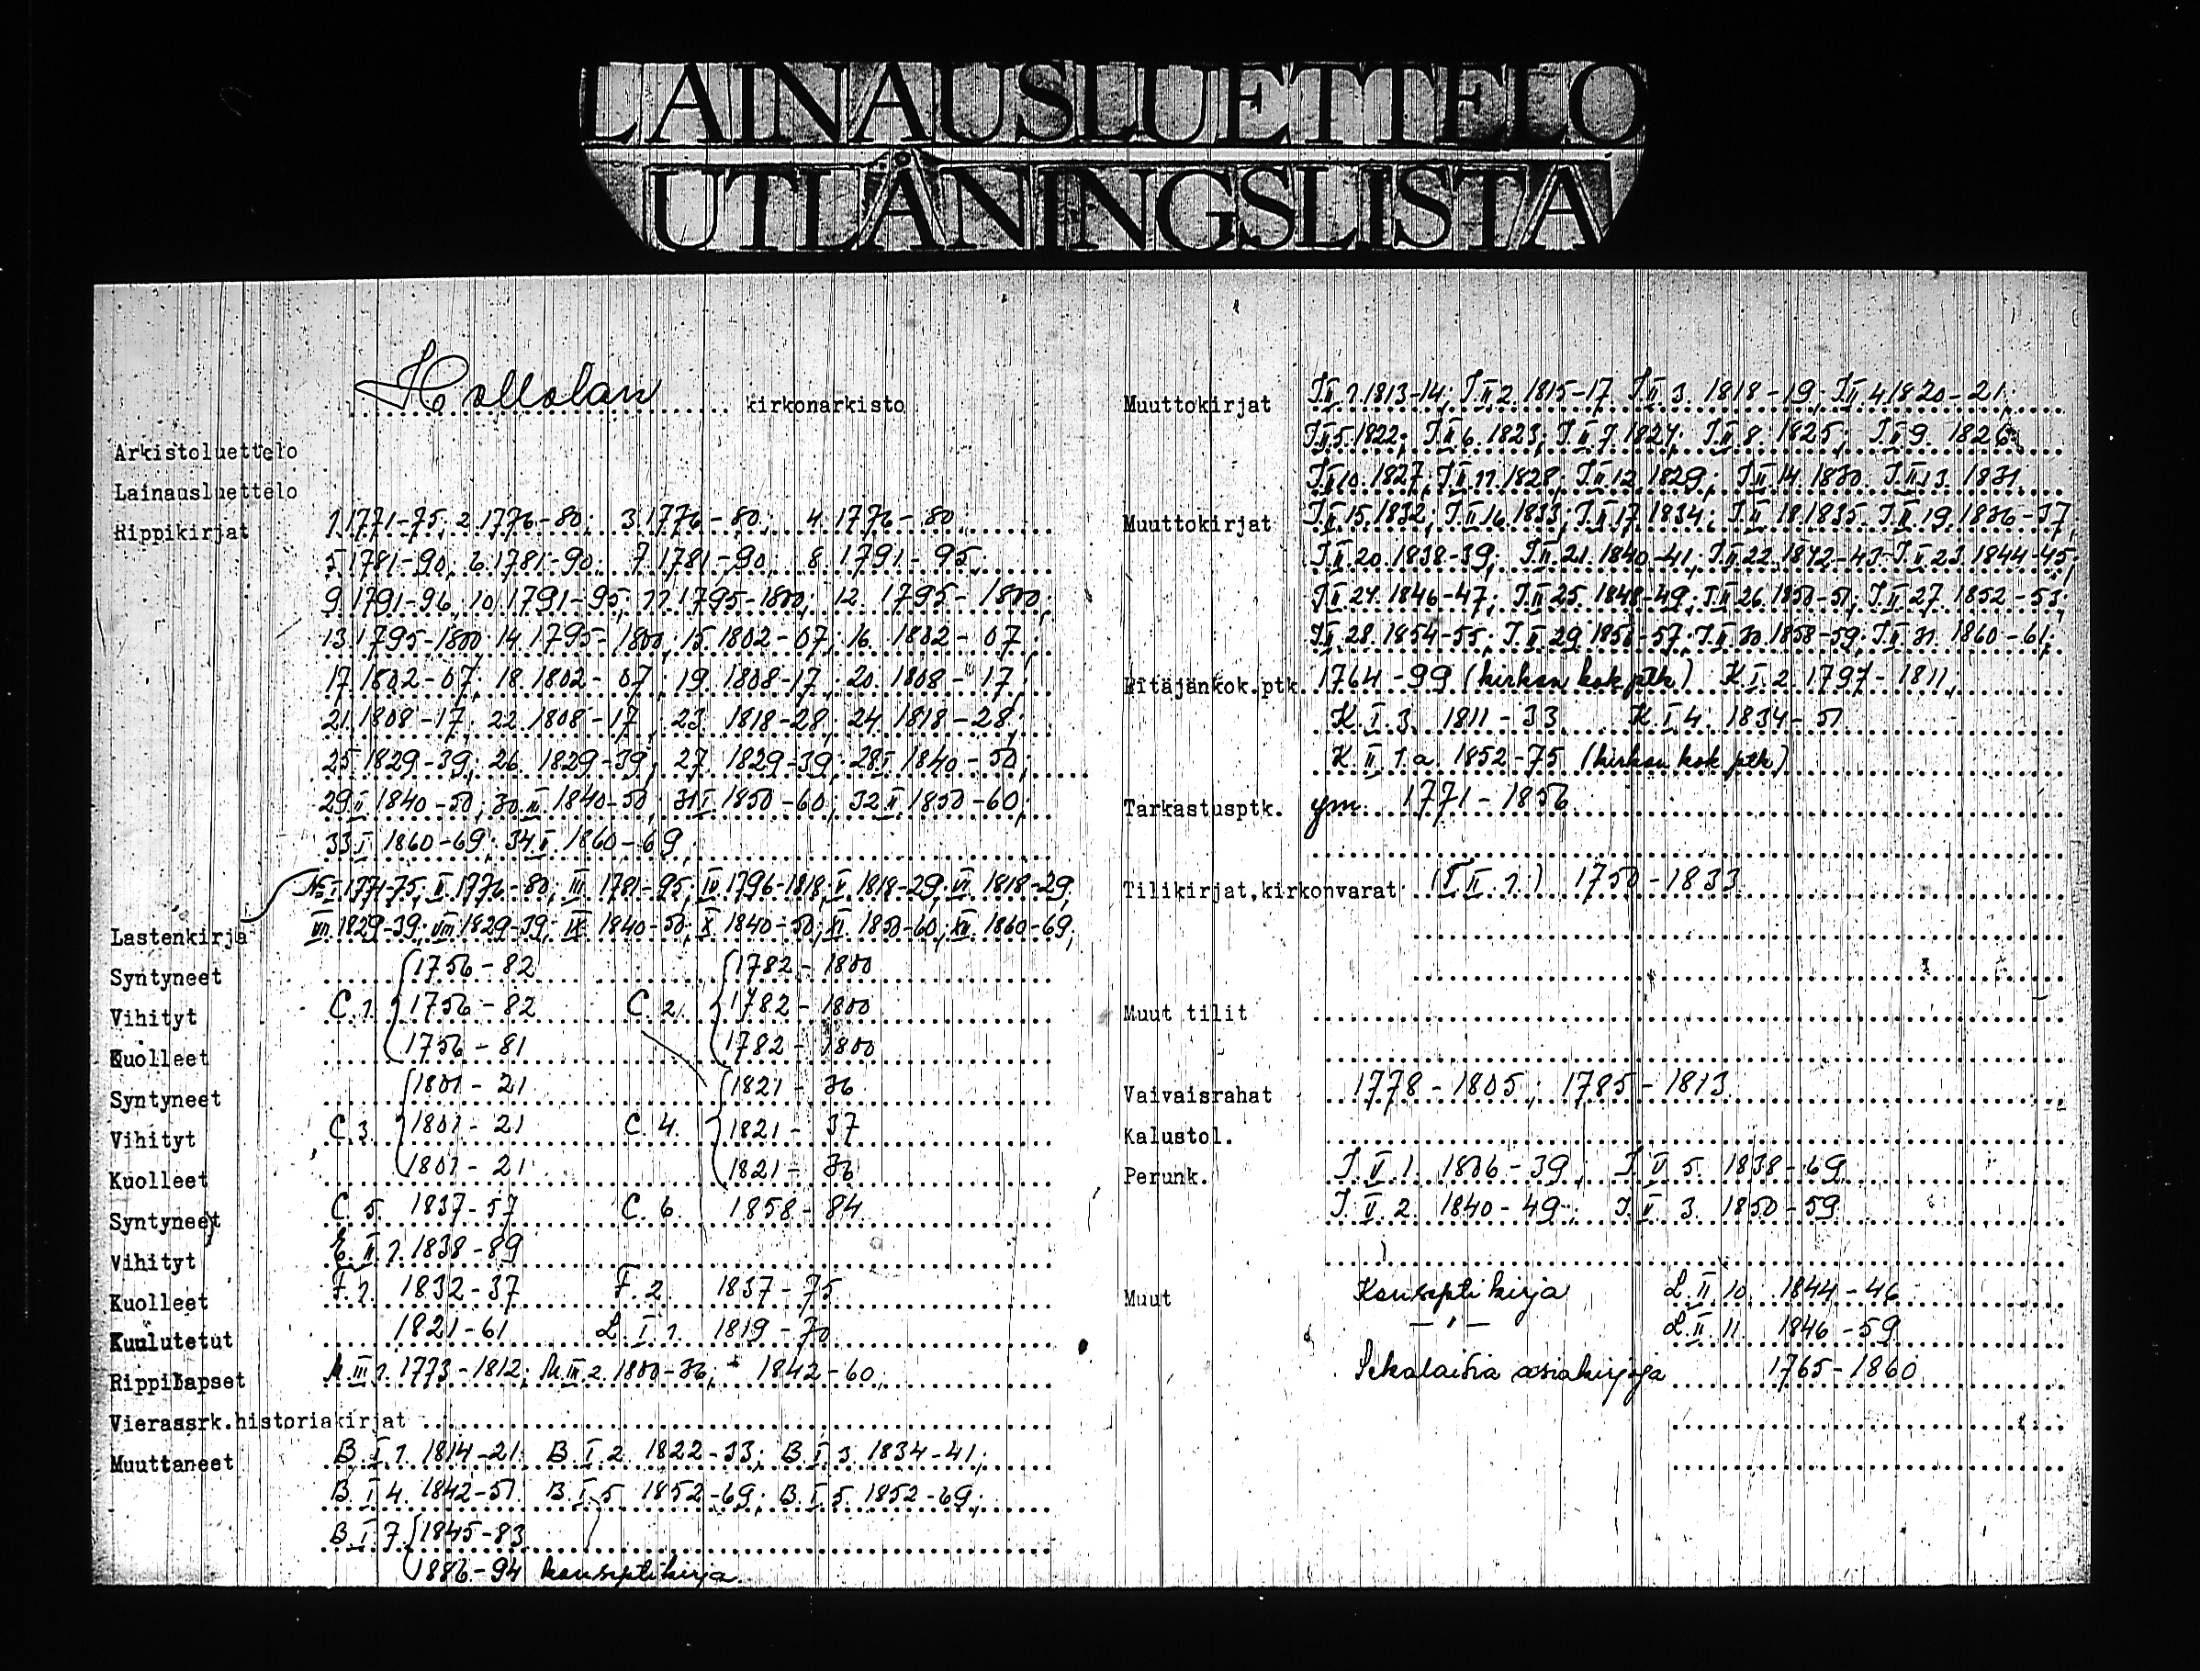 LAINAUSLUETTELO
UTLÅNINGSLISTA
Hollolan kirkonarkisto
Arkistoluettelo
Lainausluettelo
Rippikirjat 1.1771-75; 2.1776-80; 3.1776-80; 4.1776-80;
5.1781-90; 6.1781-90; 7.1781-90; 8.1791-95;
9.1791-96; 10.1791-95; 11.1795-1800; 12.1795-1800;
13.1795-1800; 14.1795-1800; 15.1802-07; 16.1802-07;
17.1802-07; 18.1802-07; 19.1808-17; 20.1808-17;
21.1808-17; 22.1808-17; 23.1818-28; 24.1818-28;
25.1829-39; 26.1829-39; 27.1829-39; 28.I 1840-50;
29.II 1840-50; 30.III 1840-50; 31.I 1850-60; 32.II 1850-60;
33.I 1860-69; 34.I 1860-69;
No I 1771-75; II 1776-80; III 1781-95; IV 1796-1818; V 1818-29; VI 1818-29;
Lastenkirja VII 1829-39; VIII 1829-39; IX 1840-50; X 1840-50; XI 1850-60; XII 1860-69;
Syntyneet 1756-82 1782-1800
Vihityt C.1. 1756-82 C.2. 1782-1800
Kuolleet 1756-81 1782-1800
Syntyneet 1801-21 1821-36
Vihityt C.3. 1801-21 C.4. 1821-37
Kuolleet 1801-21 1821-36
Syntyneet C.5. 1837-57 C.6. 1858-84
Vihityt E.II.1. 1838-89
Kuolleet F.1. 1832-37 F.2. 1837-75
Kuulutetut 1821-61 L.I.1. 1819-70
Rippilapset M.III.1. 1773-1812; M.III.2. 1800-36; 1842-60;
Vierassrk.historiakirjat
Muuttaneet B.I.1. 1814-21; B.I.2. 1822-33; B.I.3. 1834-41;
B.I.4. 1842-51; B.I.5. 1852-69; B.I.5. 1852-69;
B.I.7. 1845-83
1886-94 konseptikirja.
Muuttokirjat I.II.1. 1813-14; I.II.2. 1815-17; I.II.3. 1818-19; I.II.4. 1820-21;
I.II.5. 1822; I.II.6. 1823; I.II.7. 1824; I.II.8. 1825; I.II.9. 1826;
I.II.10. 1827; I.II.11. 1828; I.II.12. 1829; I.II.14. 1830; I.II.13. 1831
Muuttokirjat I.II.15. 1832; I.II.16. 1833; I.II.17. 1834; I.II.18. 1835; I.II.19. 1836-37;
I.II.20. 1838-39; I.II.21. 1840-41; I.II.22. 1842-43; I.II.23. 1844-45;
I.II.24. 1846-47; I.II.25. 1848-49; I.II.26. 1850-51; I.II.27. 1852-53;
I.II.28. 1854-55; I.II.29. 1856-57; I.II.30. 1858-59; I.II.31. 1860-61;
Pitäjänkok.ptk. 1764-99 (kirkon kok ptk) K.I.2. 1797-1811;
K.I.3. 1811-33 K.I.4. 1834-51
K.II.1.a. 1852-75 (kirkon kok ptk)
Tarkastusptk. ym. 1771-1856
Tilikirjat,kirkonvarat (T II.1.) 1750-1833
Muut tilit
Vaivaisrahat 1778-1805; 1785-1813
Kalustol.
Perunk. I.V.1. 1836-39; I.V.5. 1838-69
I.V.2. 1840-49; I.V.3. 1850-59
Muut Konseptikirja L.II.10. 1844-46
- " - L.II.11. 1846-59
Sekalaisia asiakirjoja 1765-1860